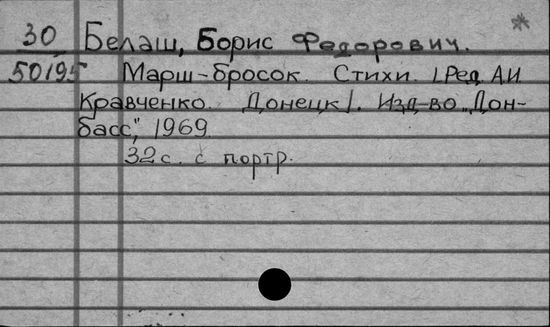 30 Белаш, Борис Федорович.
50195 Марш-бросок. Стихи. /Ред. А.И
Кравченко. Донецк/. Изд-во „Дон-
басс", 1969.
32 с. с портр.